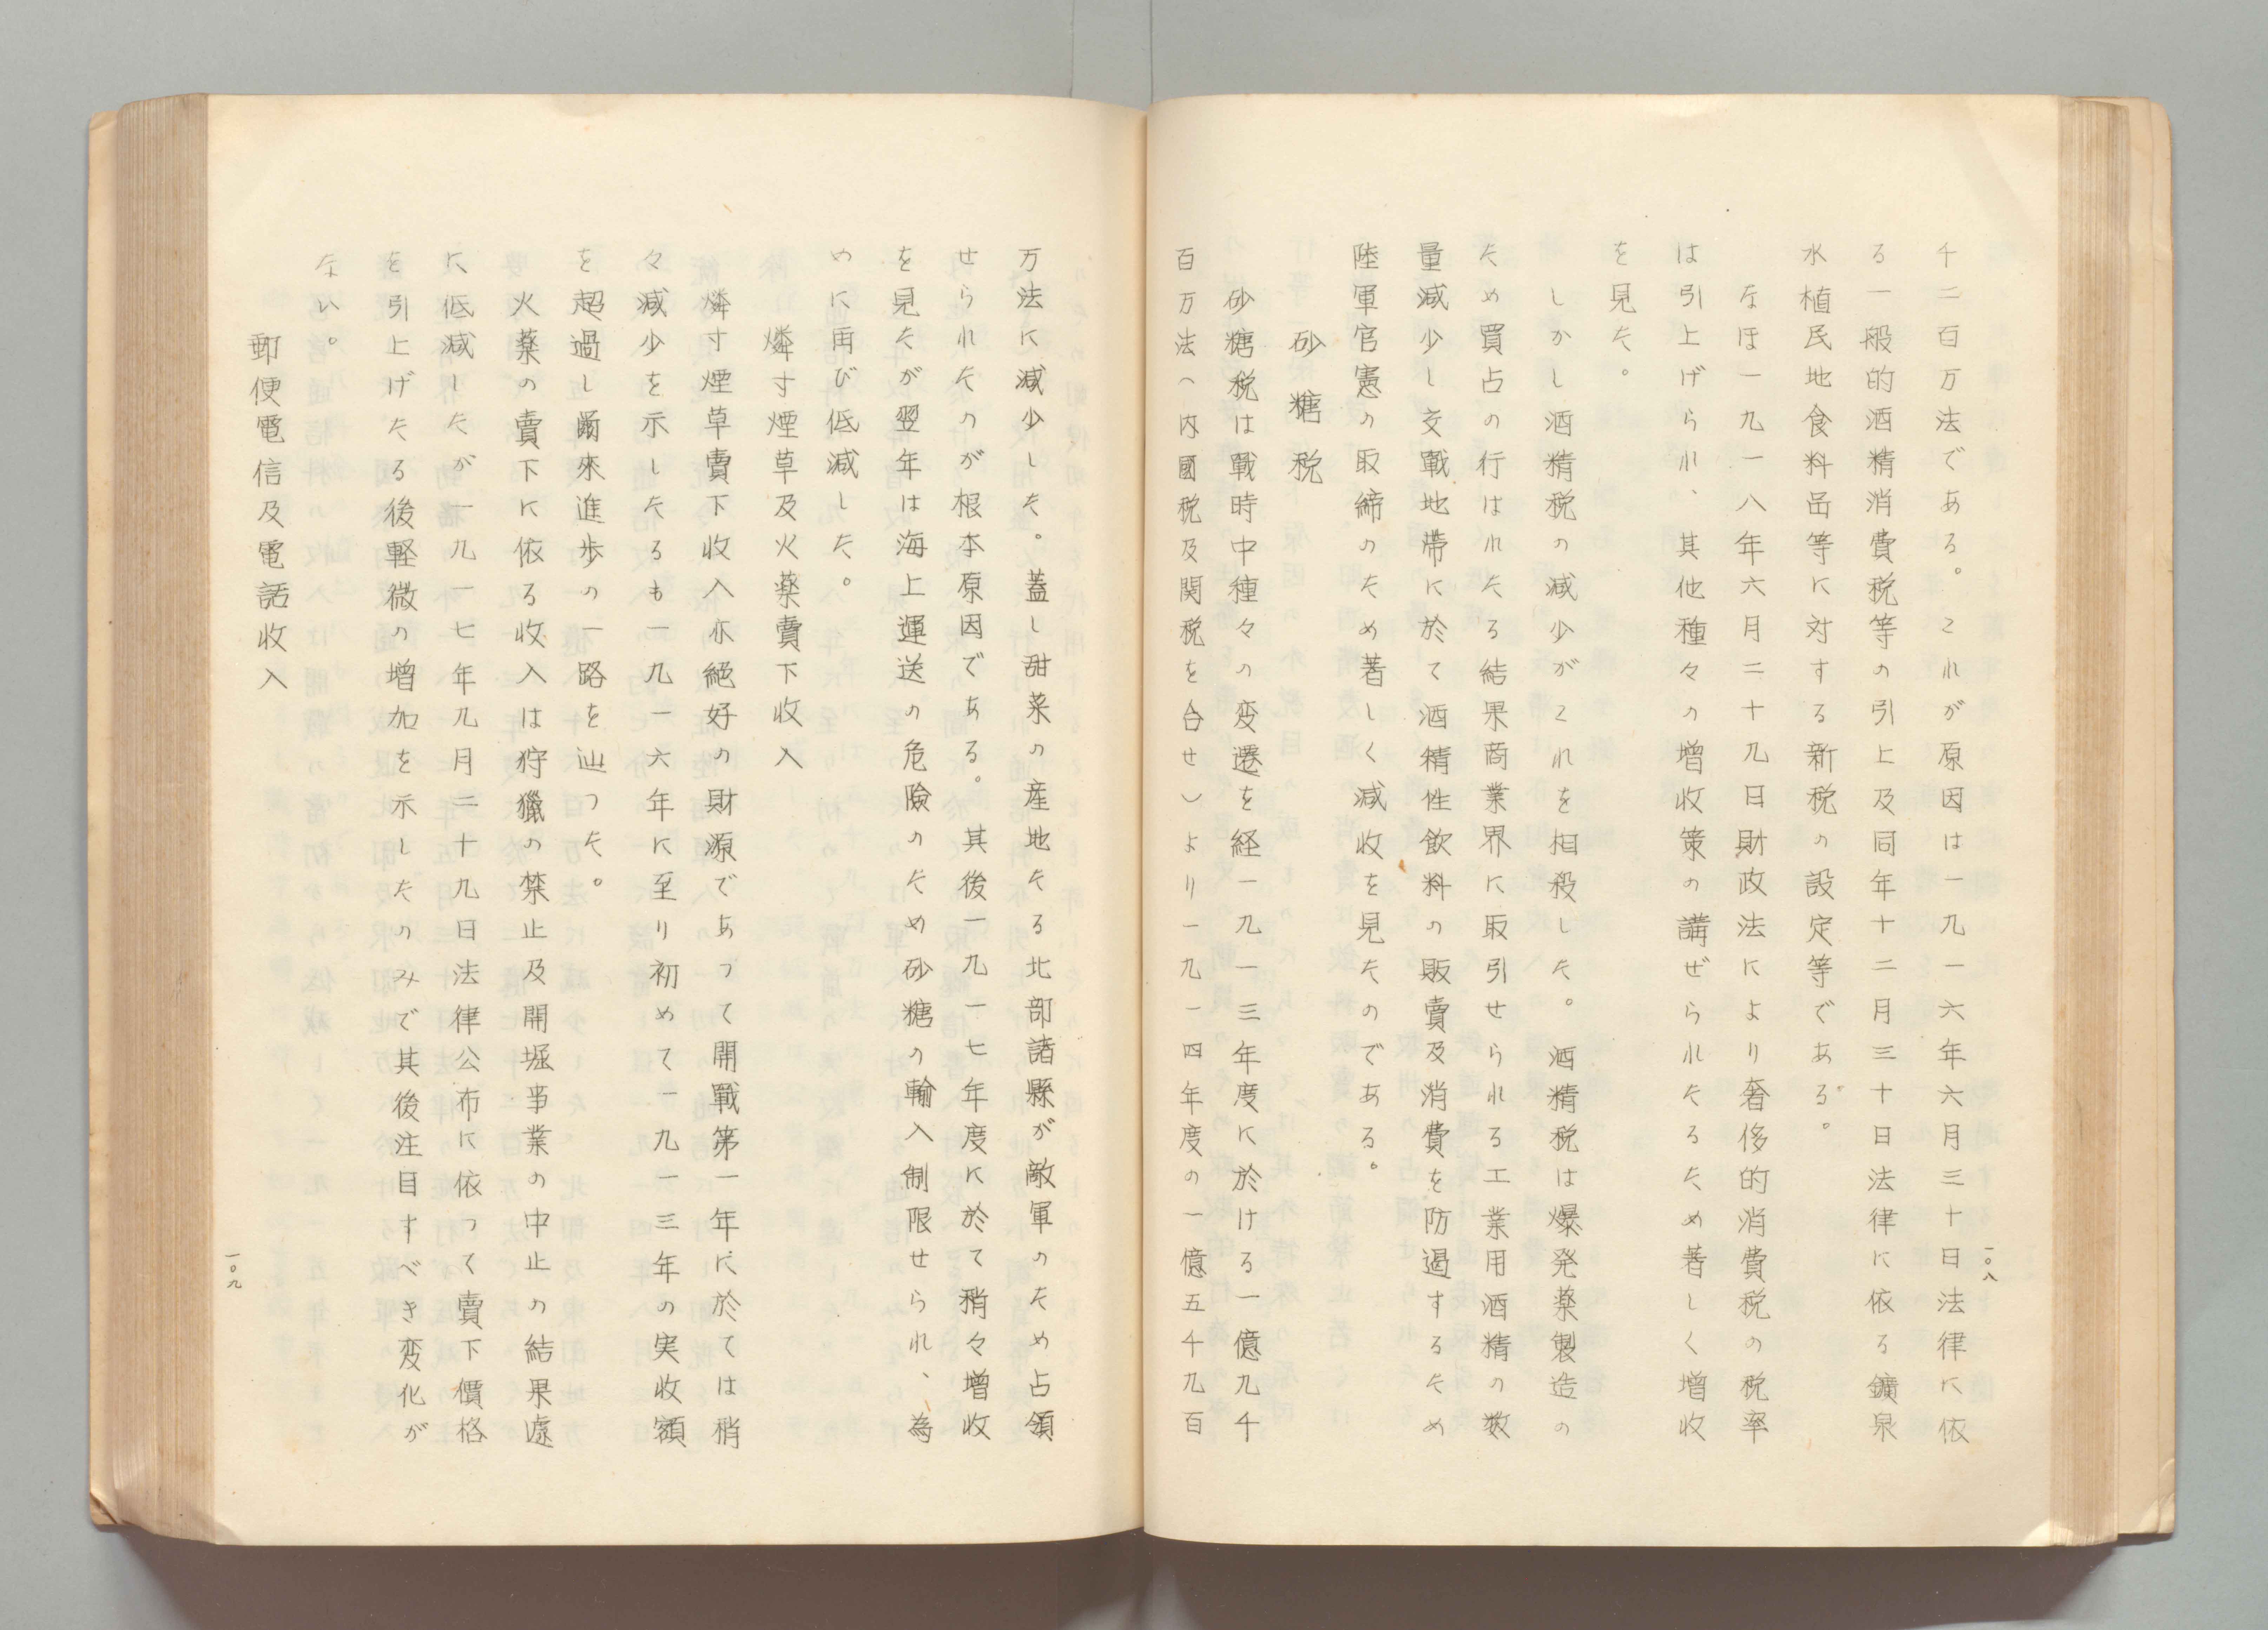 千二百万法である。これが原因は一九一六年六月三十日法律に依
る一般的酒精消費税等の引上及同年十二月三十日法律に依る鑛泉
水植民地食料品等に対する新税の設定等である。
なほ一九一八年六月二十九日財政法により奢侈的消費税の税率
は引上げられ、其他種々の増收策の講ぜられたるため著しく増收
を見た。
しかし酒精税の減少がこれを相殺した。酒精税は爆発薬製造の
ため買占の行はれたる結果商業界に取引せられる工業用酒精の数
量減少し交戰地帶に於て酒精性飲料の販賣及消費を防遏するため
陸軍官憲の取締のため著しく減收を見たのである。
砂糖税
砂糖税は戰時中種々の変遷を経一九一三年度に於ける一億九千
百万法（内國税及関税を合せ）より一九一四年度の一億五千九百
一〇八
万法に減少した。蓋し甜菜の産地たる北部諸縣が敵軍のため占領
せられたのが根本原因である。其後一九一七年度に於て稍々増收
を見たが翌年は海上運送の危險のため砂糖の輸入制限せられ、為
めに再び低減した。
燐寸煙草及火薬賣下收入
燐寸煙草賣下收入亦絕好の財源であつて開戰第一年に於ては稍
々減少を示したるも一九一六年に至り初めて一九一三年の実收額
を超過し爾來進歩の一路を辿つた。
火薬の賣下に依る收入は狩獵の禁止及開堀事業の中止の結果遽
に低減したが一九一七年九月二十九日法律公布に依つて賣下價格
を引上げたる後軽微の増加を示したのみで其後注目すべき変化が
ない。
郵便電信及電話收入
一〇九